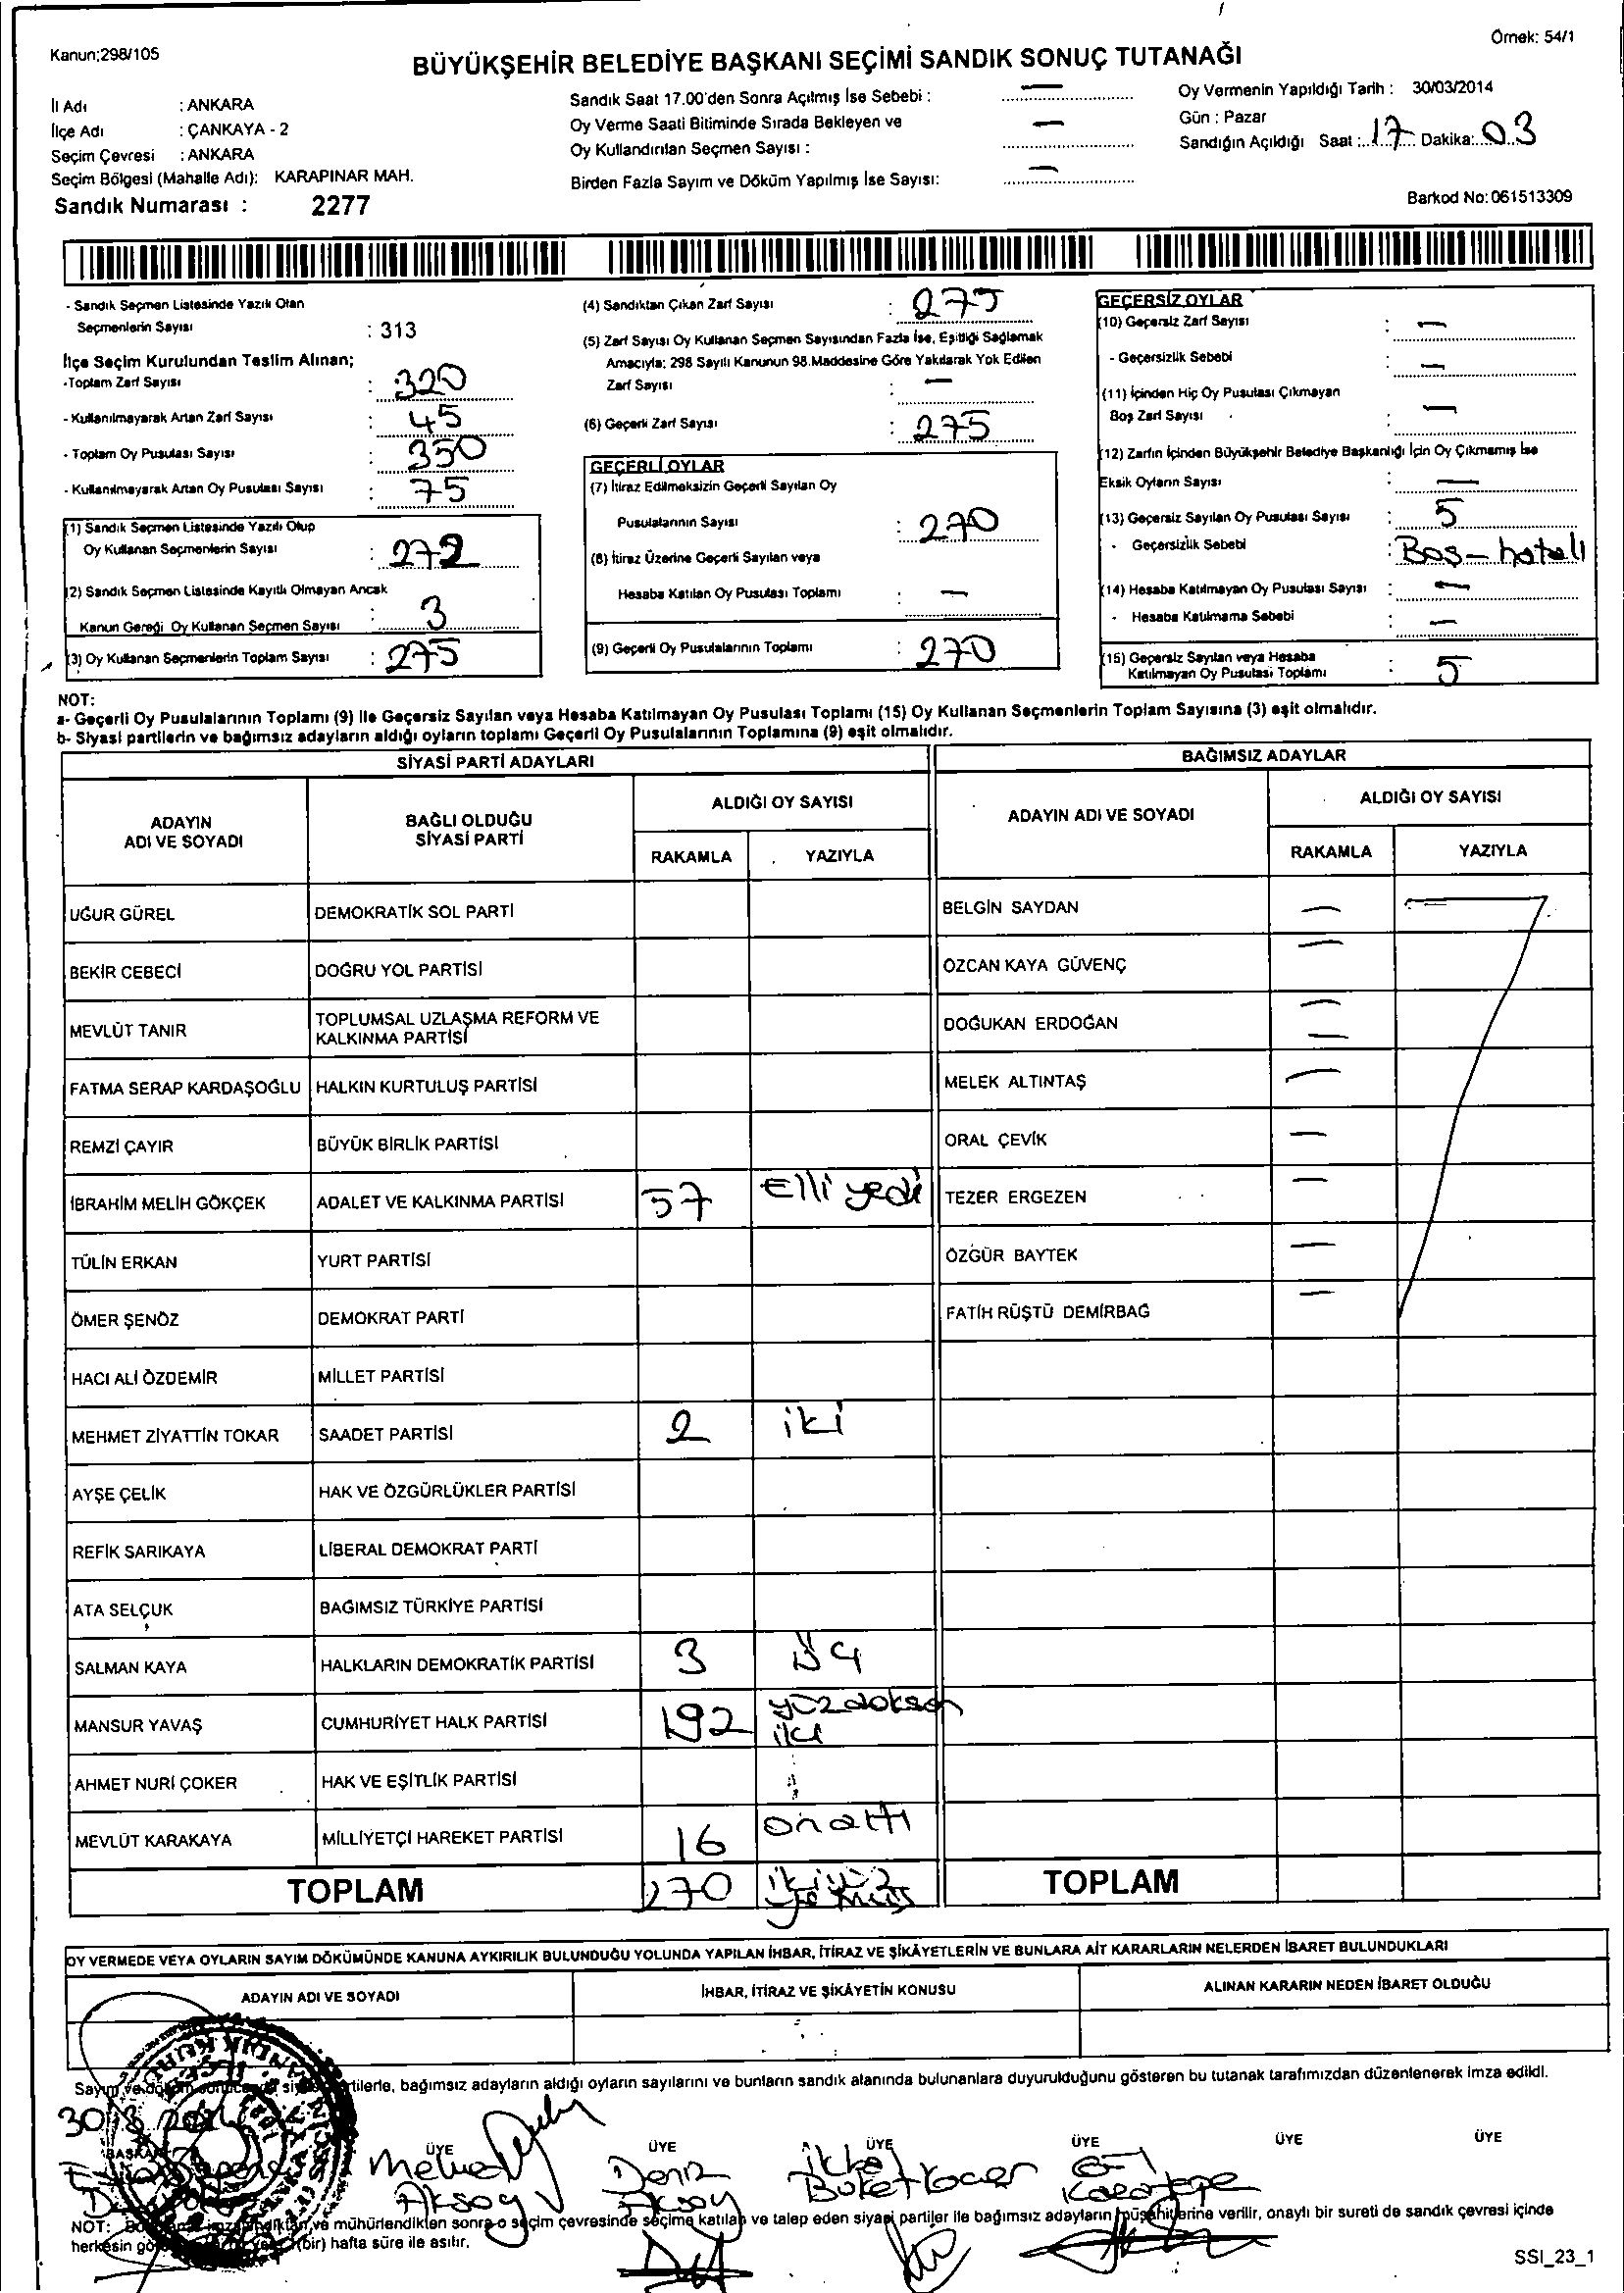 Kanun;298/105
Örnek: 54/1
BÜYÜKŞEHİR BELEDİYE BAŞKANI SEÇİMİ SANDIK SONUÇ TUTANAĞI
İl Adı : ANKARA
İlçe Adı : ÇANKAYA - 2
Seçim Çevresi : ANKARA
Seçim Bölgesi (Mahalle Adı): KARAPINAR MAH.
Sandık Numarası : 2277
Sandık Saat 17.00'den Sonra Açılmış İse Sebebi : —
Oy Verme Saati Bitiminde Sırada Bekleyen ve
Oy Kullandırılan Seçmen Sayısı : —
Birden Fazla Sayım ve Döküm Yapılmış İse Sayısı: —
Oy Vermenin Yapıldığı Tarih : 30/03/2014
Gün : Pazar
Sandığın Açıldığı Saat : 17 Dakika: 03
Barkod No: 061513309
- Sandık Seçmen Listesinde Yazılı Olan
Seçmenlerin Sayısı : 313
İlçe Seçim Kurulundan Teslim Alınan;
-Toplam Zarf Sayısı : 320
- Kullanılmayarak Artan Zarf Sayısı : 45
- Toplam Oy Pusulası Sayısı : 350
- Kullanılmayarak Artan Oy Pusulası Sayısı : 75
(1) Sandık Seçmen Listesinde Yazılı Olup
Oy Kullanan Seçmenlerin Sayısı : 272
(2) Sandık Seçmen Listesinde Kayıtlı Olmayan Ancak
Kanun Gereği Oy Kullanan Seçmen Sayısı : 3
(3) Oy Kullanan Seçmenlerin Toplam Sayısı : 275
(4) Sandıktan Çıkan Zarf Sayısı : 275
(5) Zarf Sayısı Oy Kullanan Seçmen Sayısından Fazla İse, Eşitliği Sağlamak
Amacıyla; 298 Sayılı Kanunun 98.Maddesine Göre Yakılarak Yok Edilen
Zarf Sayısı : —
(6) Geçerli Zarf Sayısı : 275
GEÇERLİ OYLAR
(7) İtiraz Edilmeksizin Geçerli Sayılan Oy
Pusulalarının Sayısı : 270
(8) İtiraz Üzerine Geçerli Sayılan veya
Hesaba Katılan Oy Pusulası Toplamı : —
(9) Geçerli Oy Pusulalarının Toplamı : 270
GEÇERSİZ OYLAR
(10) Geçersiz Zarf Sayısı : —
- Geçersizlik Sebebi : —
(11) İçinden Hiç Oy Pusulası Çıkmayan
Boş Zarf Sayısı : —
(12) Zarfın İçinden Büyükşehir Belediye Başkanlığı İçin Oy Çıkmamış İse
Eksik Oyların Sayısı : —
(13) Geçersiz Sayılan Oy Pusulası Sayısı : 5
- Geçersizlik Sebebi : Boş-hatalı
(14) Hesaba Katılmayan Oy Pusulası Sayısı : —
- Hesaba Katılmama Sebebi : —
(15) Geçersiz Sayılan veya Hesaba
Katılmayan Oy Pusulası Toplamı : 5
NOT:
a- Geçerli Oy Pusulalarının Toplamı (9) ile Geçersiz Sayılan veya Hesaba Katılmayan Oy Pusulası Toplamı (15) Oy Kullanan Seçmenlerin Toplam Sayısına (3) eşit olmalıdır.
b- Siyasi partilerin ve bağımsız adayların aldığı oyların toplamı Geçerli Oy Pusulalarının Toplamına (9) eşit olmalıdır.
SİYASİ PARTİ ADAYLARI
BAĞIMSIZ ADAYLAR
ADAYIN ADI VE SOYADI
BAĞLI OLDUĞU SİYASİ PARTİ
ALDIĞI OY SAYISI
RAKAMLA YAZIYLA
ADAYIN ADI VE SOYADI
ALDIĞI OY SAYISI
RAKAMLA YAZIYLA
UĞUR GÜREL DEMOKRATİK SOL PARTİ BELGİN SAYDAN —
BEKİR CEBECİ DOĞRU YOL PARTİSİ ÖZCAN KAYA GÜVENÇ —
MEVLÜT TANIR TOPLUMSAL UZLAŞMA REFORM VE KALKINMA PARTİSİ DOĞUKAN ERDOĞAN —
FATMA SERAP KARDAŞOĞLU HALKIN KURTULUŞ PARTİSİ MELEK ALTINTAŞ —
REMZİ ÇAYIR BÜYÜK BİRLİK PARTİSİ ORAL ÇEVİK —
İBRAHİM MELİH GÖKÇEK ADALET VE KALKINMA PARTİSİ 57 Elli yedi TEZER ERGEZEN —
TÜLİN ERKAN YURT PARTİSİ ÖZGÜR BAYTEK —
ÖMER ŞENÖZ DEMOKRAT PARTİ FATİH RÜŞTÜ DEMİRBAĞ —
HACI ALİ ÖZDEMİR MİLLET PARTİSİ
MEHMET ZİYATTİN TOKAR SAADET PARTİSİ 2 iki
AYŞE ÇELİK HAK VE ÖZGÜRLÜKLER PARTİSİ
REFİK SARIKAYA LİBERAL DEMOKRAT PARTİ
ATA SELÇUK BAĞIMSIZ TÜRKİYE PARTİSİ
SALMAN KAYA HALKLARIN DEMOKRATİK PARTİSİ 3 üç
MANSUR YAVAŞ CUMHURİYET HALK PARTİSİ 192 yüzdoksan iki
AHMET NURİ ÇOKER HAK VE EŞİTLİK PARTİSİ
MEVLÜT KARAKAYA MİLLİYETÇİ HAREKET PARTİSİ 16 onaltı
TOPLAM 270 ikiyüz yetmiş TOPLAM
OY VERMEDE VEYA OYLARIN SAYIM DÖKÜMÜNDE KANUNA AYKIRILIK BULUNDUĞU YOLUNDA YAPILAN İHBAR, İTİRAZ VE ŞİKÂYETLERİN VE BUNLARA AİT KARARLARIN NELERDEN İBARET BULUNDUKLARI
ADAYIN ADI VE SOYADI İHBAR, İTİRAZ VE ŞİKÂYETİN KONUSU ALINAN KARARIN NEDEN İBARET OLDUĞU
Sayım ve bağımsız adayların aldığı oyların sayılarını ve bunların sandık alanında bulunanlara duyurulduğunu gösteren bu tutanak tarafımızdan düzenlenerek imza edildi.
BAŞKAN ÜYE ÜYE ÜYE ÜYE ÜYE ÜYE
Deniz Aksoy
Aksoy
Buket Kocer
Karatepe
NOT: ve mühürlendikten sonra o seçim çevresinde seçime katılan ve talep eden siyasi partiler ile bağımsız adayların müşahitlerine verilir, onaylı bir sureti de sandık çevresi içinde
herkesin (bir) hafta süre ile asılır.
SSI_23_1